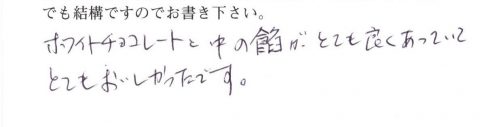 でも結構ですのでお書き下さい。
ホワイトチョコレートと中の餡がとても良くあっていて
とてもおいしかったです。